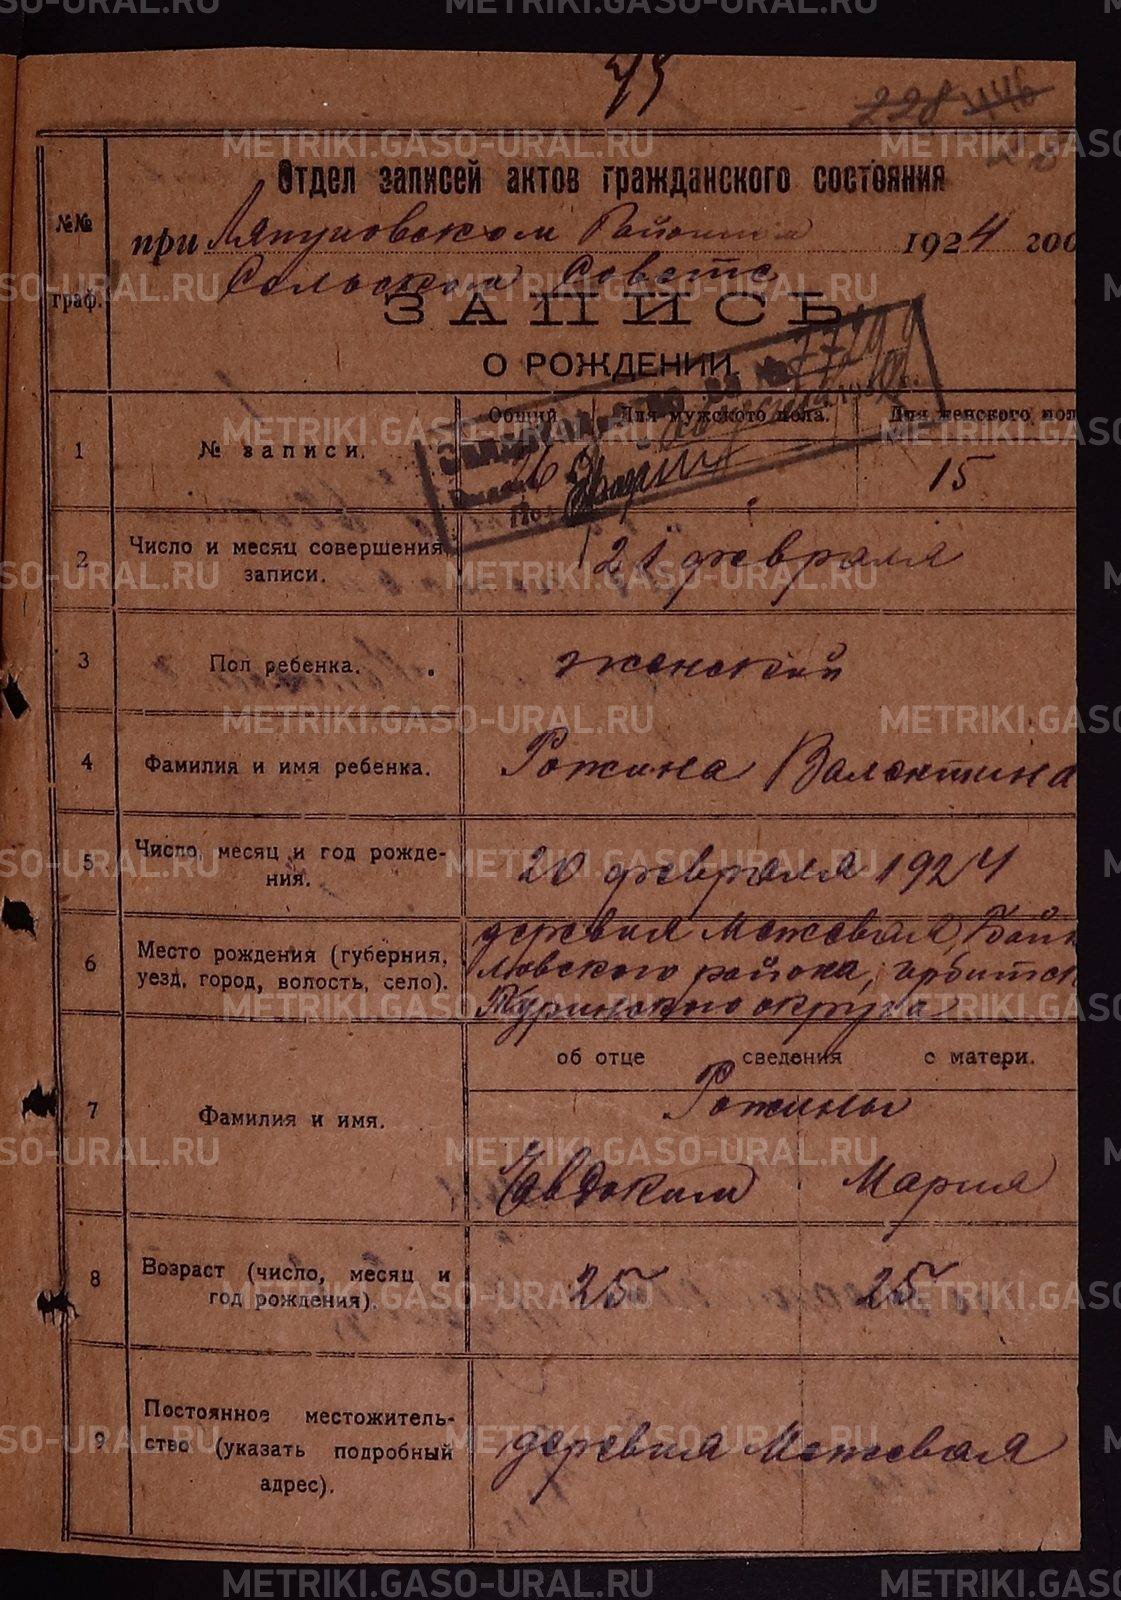 75
228 446
Отдел записей актов гражданского состояния
№№ граф.
при Ляпуновском Районном 1924 год
Сельском Совете
ЗАПИСЬ
О РОЖДЕНИИ.
Общий Для мужского пола. Для женского пол
1 № записи. 26 15
2 Число и месяц совершения 21 февраля
записи.
3 Пол ребенка. женский
4 Фамилия и имя ребенка. Рожина Валентина
5 Число, месяц и год рожде- 20 февраля 1924
ния.
6 Место рождения (губерния, деревня Межевая, Байк
уезд, город, волость, село). ловского района, ирбитск
Туринского округа
об отце сведения о матери.
Рожины
7 Фамилия и имя.
Евдоким Мария
8 Возраст (число, месяц и 25 25
год рождения).
9 Постоянное местожитель-
ство (указать подробный деревня Межевая
адрес).
METRIKI.GASO-URAL.RU